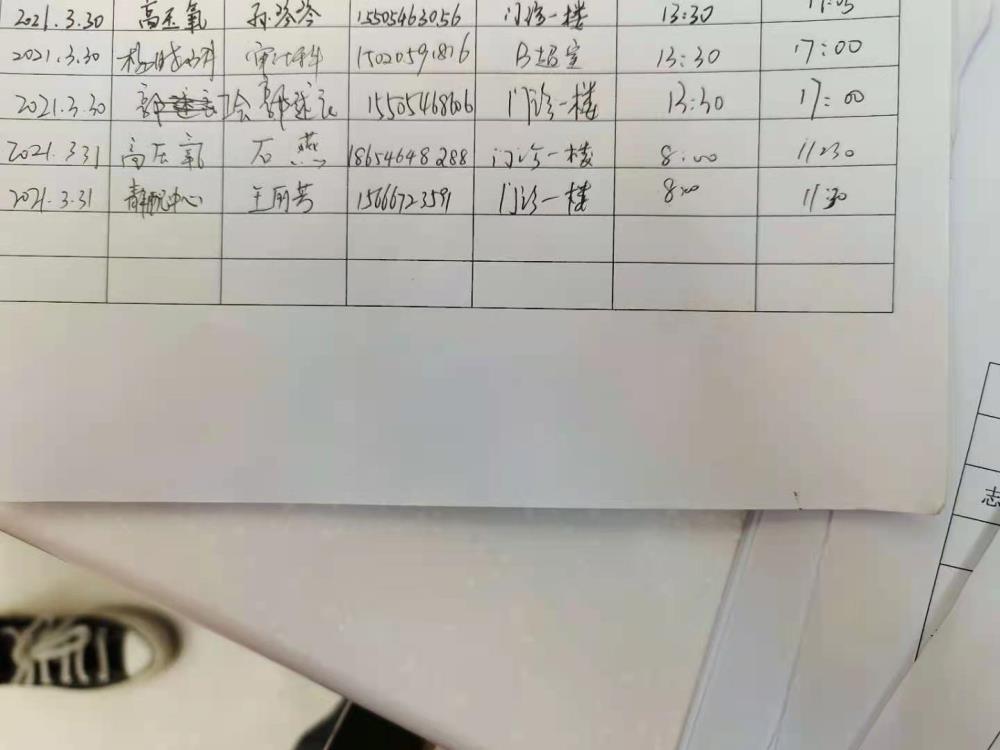 2021.3.30 高压氧 孙泠泠 15505463056 门诊一楼 13:30 17:05
2021.3.30 审计科 15020591816 B超室 13:30 17:00
2021.3.30 15505468606 门诊一楼 13:30 17:00
2021.3.31 高压氧 石燕 18654648288 门诊一楼 8:00 11:30
2021.3.31 静配中心 王丽芳 15666723591 门诊一楼 8:00 11:30
志